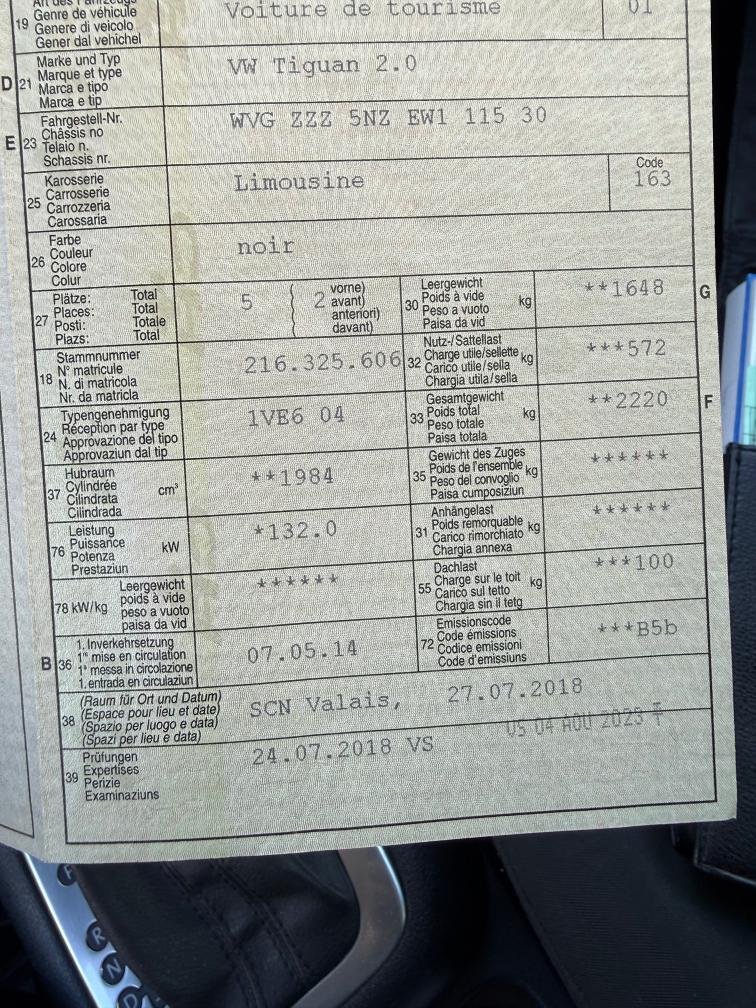 19 Genre de véhicule
Genere di veicolo
Gener dal vehichel
Voiture de tourisme
01
D 21 Marke und Typ
Marque et type
Marca e tipo
Marca e tip
VW Tiguan 2.0
E 23 Fahrgestell-Nr.
Châssis no
Telaio n.
Schassis nr.
WVG ZZZ 5NZ EW1 115 30
25 Karosserie
Carrosserie
Carrozzeria
Carossaria
Limousine
Code
163
26 Farbe
Couleur
Colore
Colur
noir
27 Plätze: Total
Places: Total
Posti: Totale
Plazs: Total
5 2 vorne)
avant)
anteriori)
davant)
30 Leergewicht
Poids à vide
Peso a vuoto
Paisa da vid
kg
**1648
G
18 Stammnummer
N° matricule
N. di matricola
Nr. da matricla
216.325.606
32 Nutz-/Sattellast
Charge utile/sellette
Carico utile/sella
Chargia utila/sella
kg
***572
24 Typengenehmigung
Réception par type
Approvazione del tipo
Approvaziun dal tip
1VE6 04
33 Gesamtgewicht
Poids total
Peso totale
Paisa totala
kg
**2220
F
37 Hubraum
Cylindrée
Cilindrata
Cilindrada
cm³
**1984
35 Gewicht des Zuges
Poids de l'ensemble
Peso del convoglio
Paisa cumposiziun
kg
******
76 Leistung
Puissance
Potenza
Prestaziun
kW
*132.0
31 Anhängelast
Poids remorquable
Carico rimorchiato
Chargia annexa
kg
******
78 kW/kg Leergewicht
poids à vide
peso a vuoto
paisa da vid
******
55 Dachlast
Charge sur le toit
Carico sul tetto
Chargia sin il tetg
kg
***100
B 36 1. Inverkehrsetzung
1re mise en circulation
1a messa in circolazione
1. entrada en circulaziun
07.05.14
72 Emissionscode
Code émissions
Codice emissioni
Code d'emissiuns
***B5b
38 (Raum für Ort und Datum)
(Espace pour lieu et date)
(Spazio per luogo e data)
(Spazi per lieu e data)
SCN Valais, 27.07.2018
39 Prüfungen
Expertises
Perizie
Examinaziuns
24.07.2018 VS
VS 04 AOU 2023
R
N
D